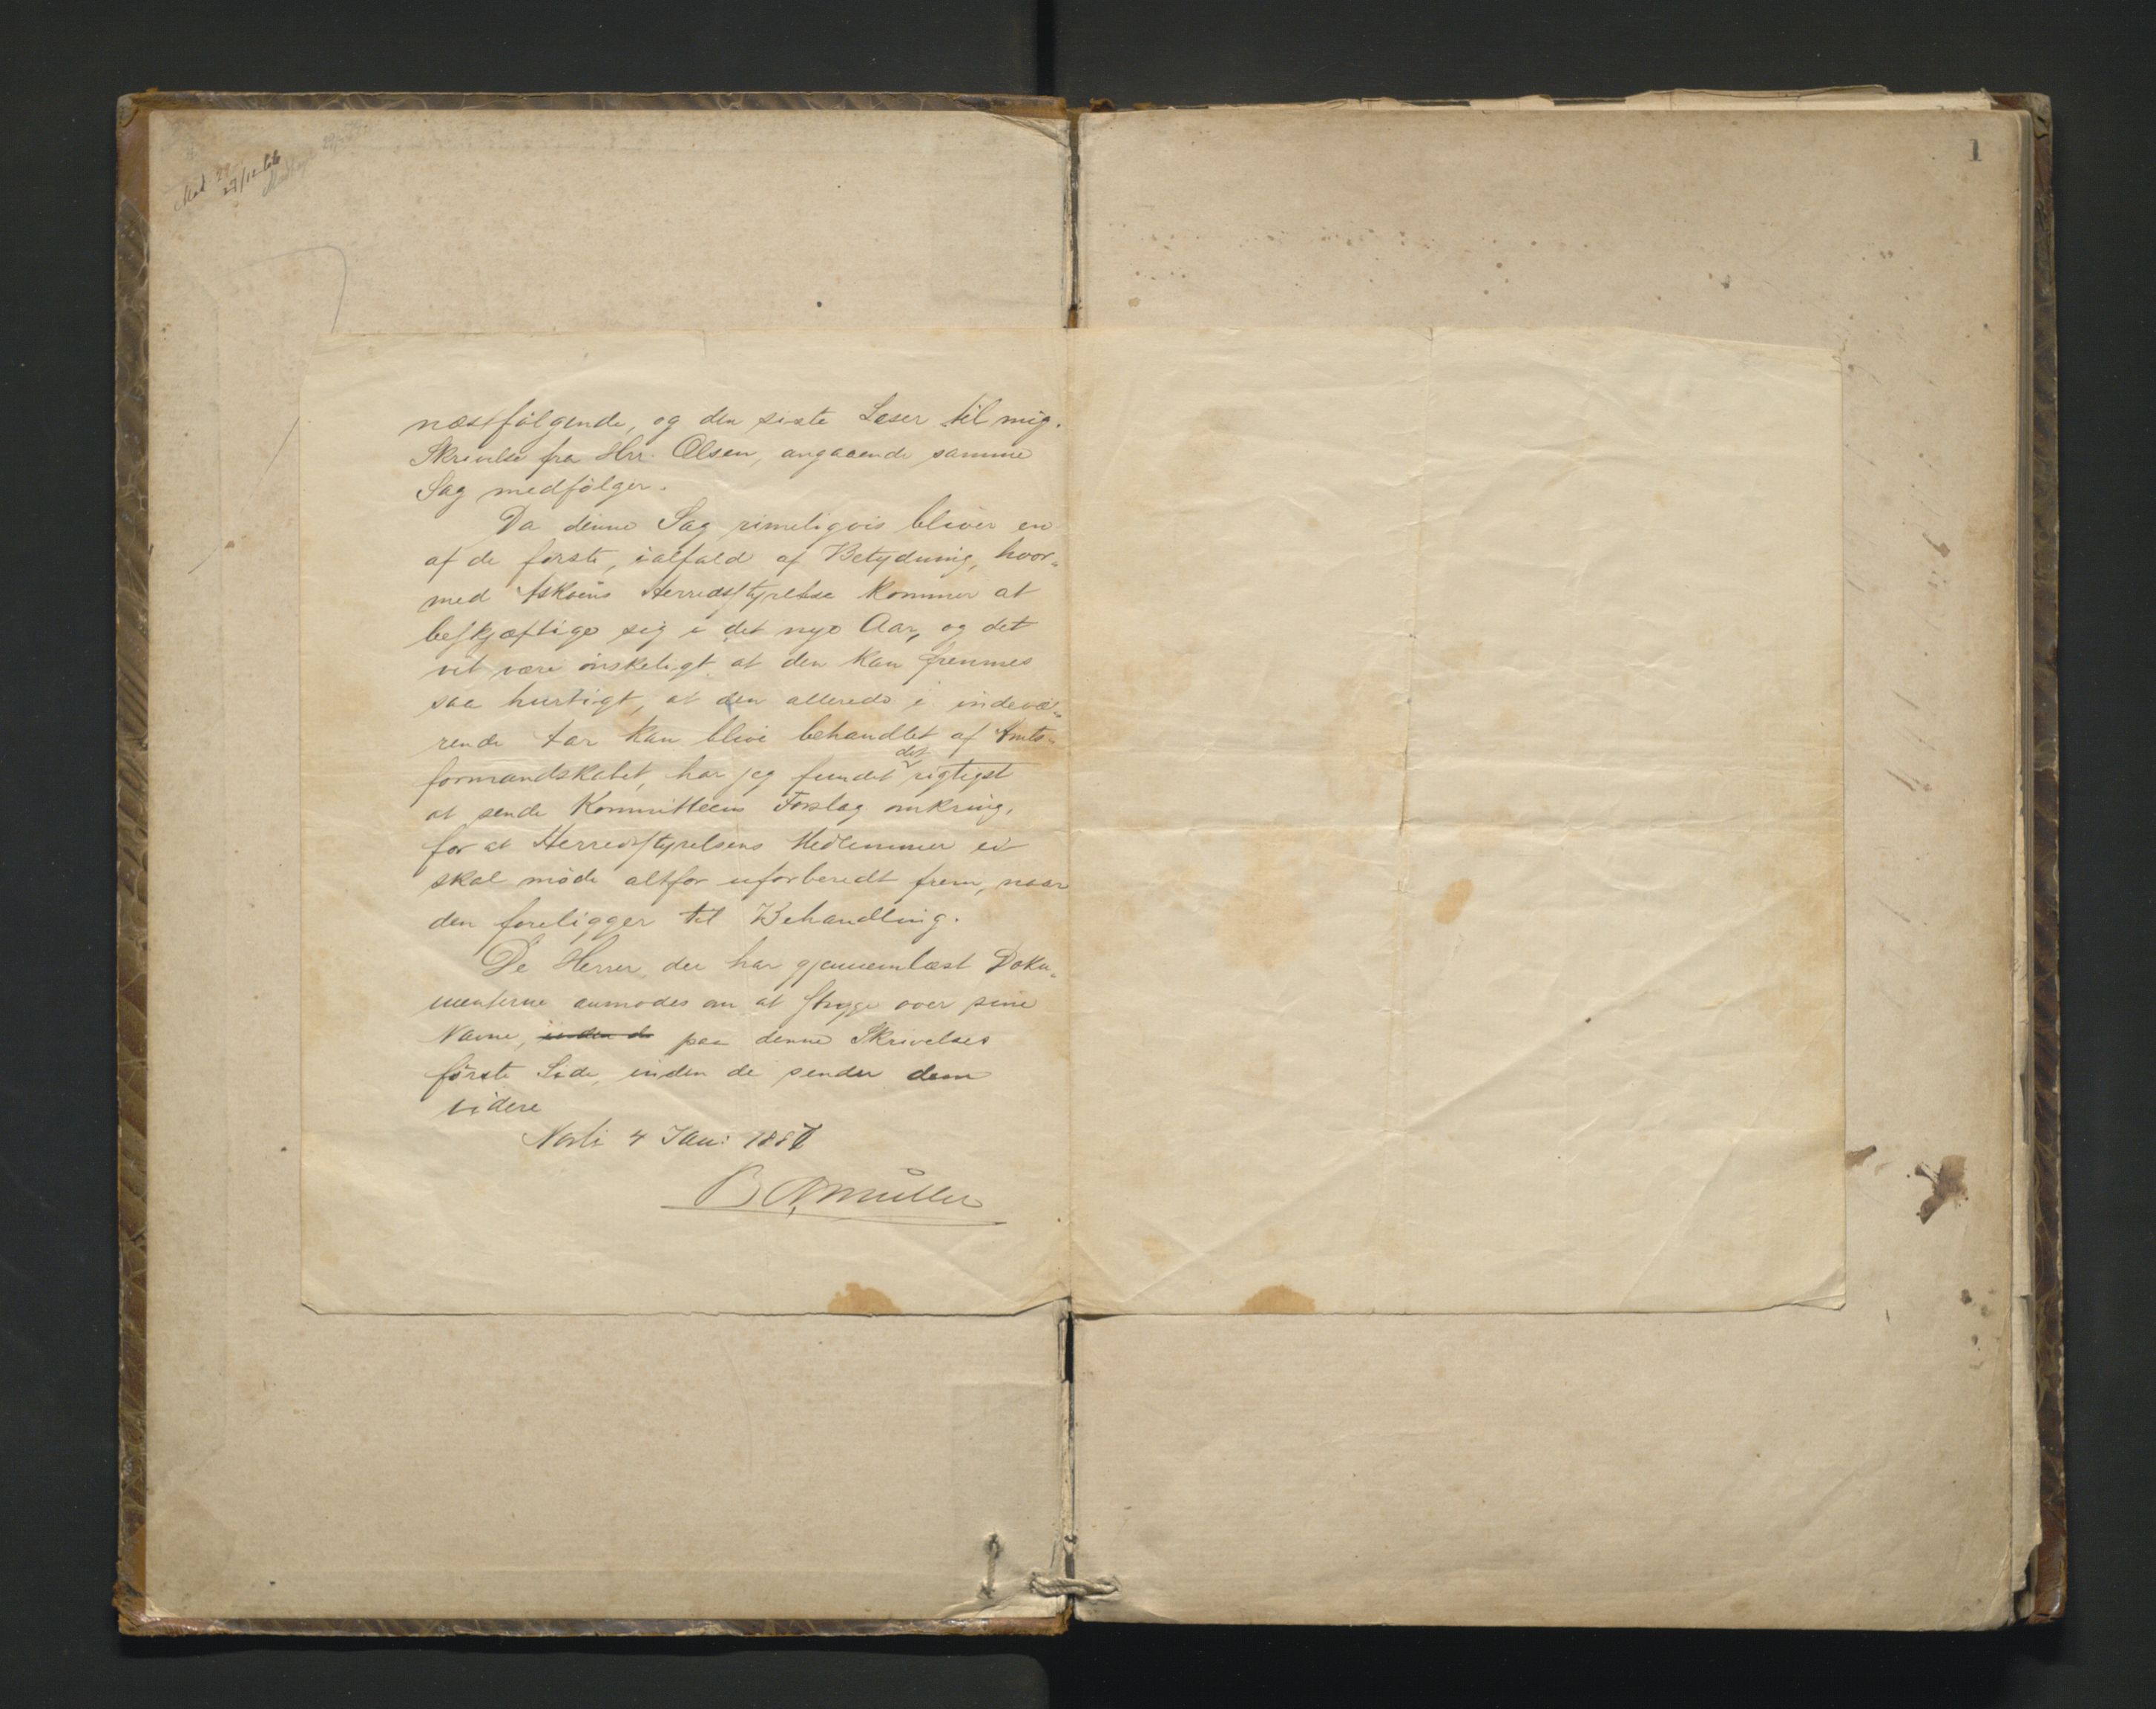 1
næstfølgende, og den siste Læser til mig.
Skrivelse fra Hrr. Olsen, angaaende samme
Sag medfölger.
Da denne Sag rimeligvis bliver en
af de første, ialfald af Betydning, hvor-
med Askøens Herredsstyrelse kommer at
beskjæftige sig i det nye Aar, og det
vil være ønskeligt at den kan fremmes
saa hurtigt, at den allerede i indevæ-
rende Aar kan blive behandlet af Amts-
formandskabet, har jeg fundet det rigtigst
at sende Kommitteens Forslag omkring,
for at Herredsstyrelsens Medlemmer ei
skal møde altfor uforberedt frem, naar
den foreligger til Behandling.
De Herrer der har gjennemlæst Doku-
menterne anmodes om at stryge over sine
Navne, inden de paa denne Skrivelses
förste Side, inden de sender dem
videre
4 Jan: 1887
Müller